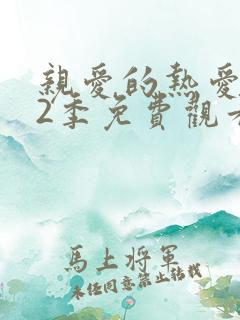 親愛的熱愛
2季免費觀看
馬上將軍
未經同意禁止轉載